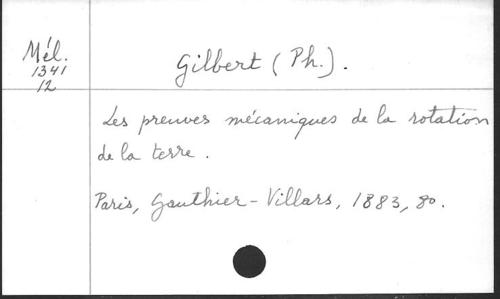 Mél.
1341
12
Gilbert (Ph.).
Les preuves mécaniques de la rotation
de la terre.
Paris, Gauthier-Villars, 1883, 8o.